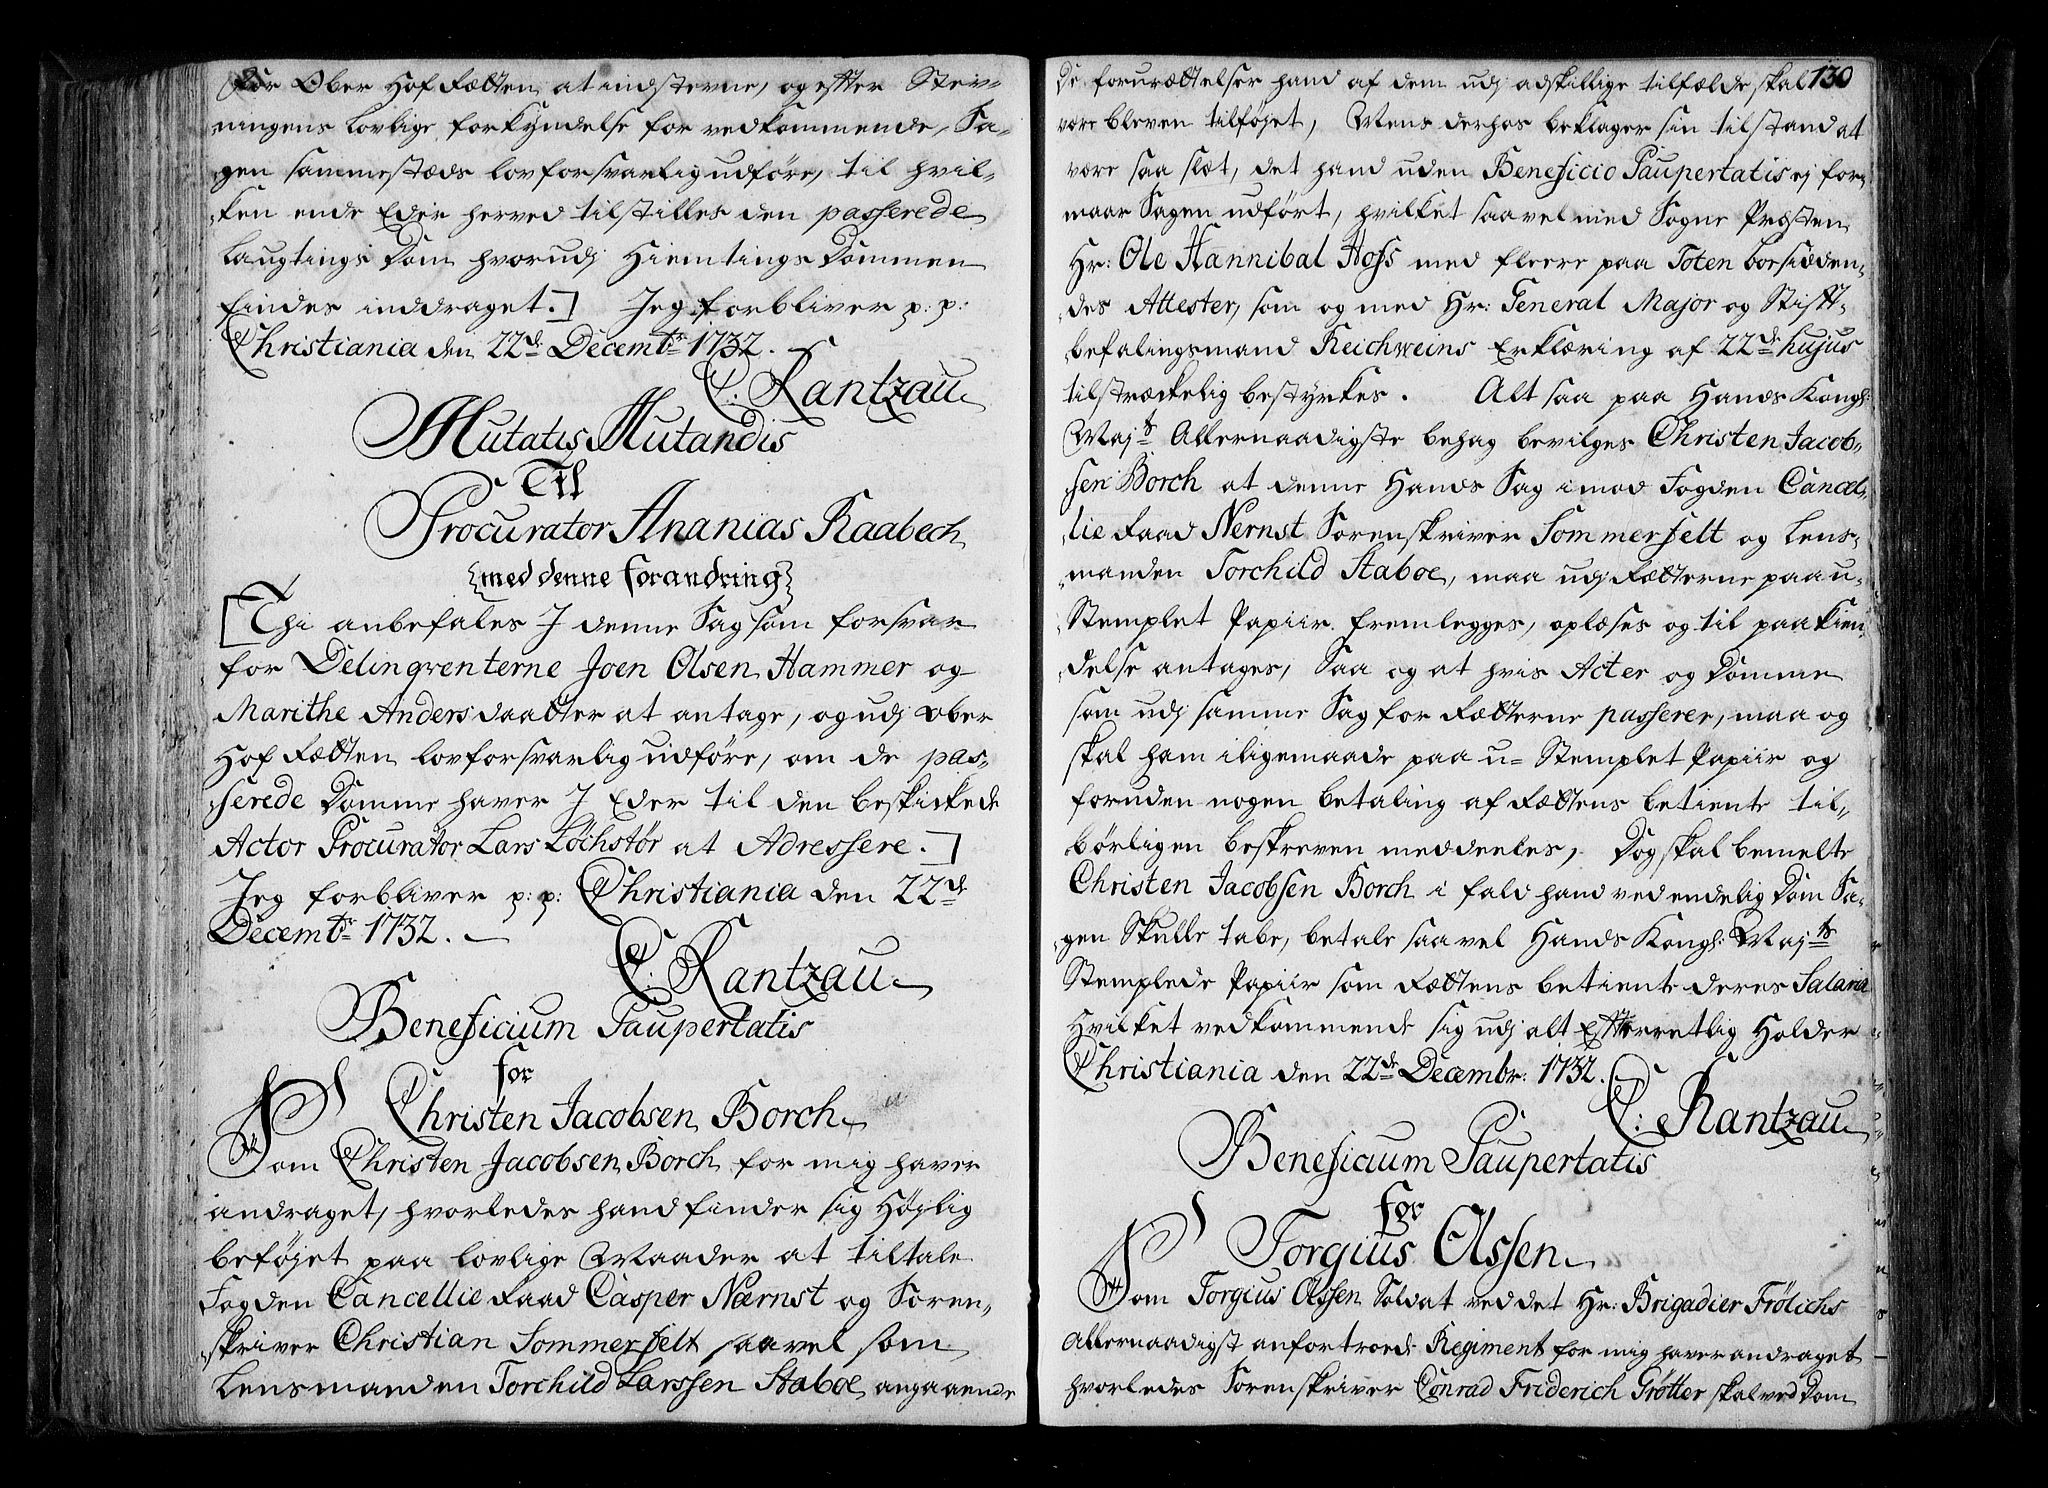 for Ober Hof Rætten at indsterne, og efter Stev-
ningens lovlige forkyndelse for vedkommende, Sa-
gen sammestæds lovforsvarlig udføre, til hvil-
ken ende Eder herved tilstilles den passerede
Laugtings Dom hvorudj Hiemtings Dommen
findes inddraget.] Jeg forbliver p: p:
Christiania den 22de Decembr 1732.
C: Rantzau
Mutatis Mutandis
Til
Procurator Ananias Raabech
{med denne forandring}
[Thi anbefales I denne Sag som forsvar
for Delinqventerne Joen Olsen Hammer og
Marithe Anders daatter at antage, og udj Ober
Hof Rætten lovforsvarlig udføre, om de pas-
serede Domme haver I Eder til den beskickede
Actor Procurator Lars Löchstör at Adressere.]
Jeg forbliver p: p: Christiania den 22de
Decembr 1732.
C: Rantzau
Beneficium Paupertatis
for
Christen Jacobsen Borch
Som Christen Jacobsen Borch for mig haver
andraget, hvorledes hand finder sig Højlig
beføjet paa lovlige Maader at tiltale
Fogden Cancellie Raad Casper Nærnst og Soren-
skriver Christian Sommerfelt saavel som
Lensmanden Torchild Larssen Staboe angaaende
130
De forurættelser hand af dem udj adskillige tilfælde skal
være bleven tilføjet, Mens derhos beklager sin tilstand at
være saa slæt, det hand uden Beneficio Paupertatis ej for-
maar Sagen udført, hvilket saavel med Sogne Præsten
Hr: Ole Hannibal Hoss med fleere paa Toten boesidden-
des Attester, som og med Hr: General Major og Stift-
befalingsmand Reichweins Erklæring af 22de hujus
tilstræckelig bestyrkes. Alt saa paa Hands Kongl:
Majts Allernaadigste behag bevilges Christen Jacob-
sen Borch at denne Hands Sag imod Fogden Cancel-
lie Raad Nernst Sorenskriver Sommerfelt og Lens-
manden Torchild Staboe, maa udj Rætterne paa u-
Stemplet Papiir fremlegges, oplæses og til paakien-
delse antages, Saa og at hvis Acter og Domme
som udj samme Sag for Rætterne passerer, maa og
skal ham iligemaade paa u-Stemplet Papiir og
foruden nogen betaling af Rættens betiente til-
børligen beskreven meddeeles, Dog skal bemelte
Christen Jacobsen Borch i fald hand ved endelig Dom Sa-
gen Skulle tabe, betale saavel Hands Kongl: Majts
Stemplede Papiir som Rættens betiente deres Salaria
Hvilket vedkommende sig udj alt Efterretlig Holder
Christiania den 22de Decembr: 1732.
C: Rantzau
Beneficium Paupertatis
for
Torgius Olssen
Som Torgius Olssen Soldat ved det Hr: Brigadier Frölichs
Allernaadigst anfortroede Regiment for mig haver andraget
hvorledes Sorenskriver Conrad Friderich Grötter skal ved Dom